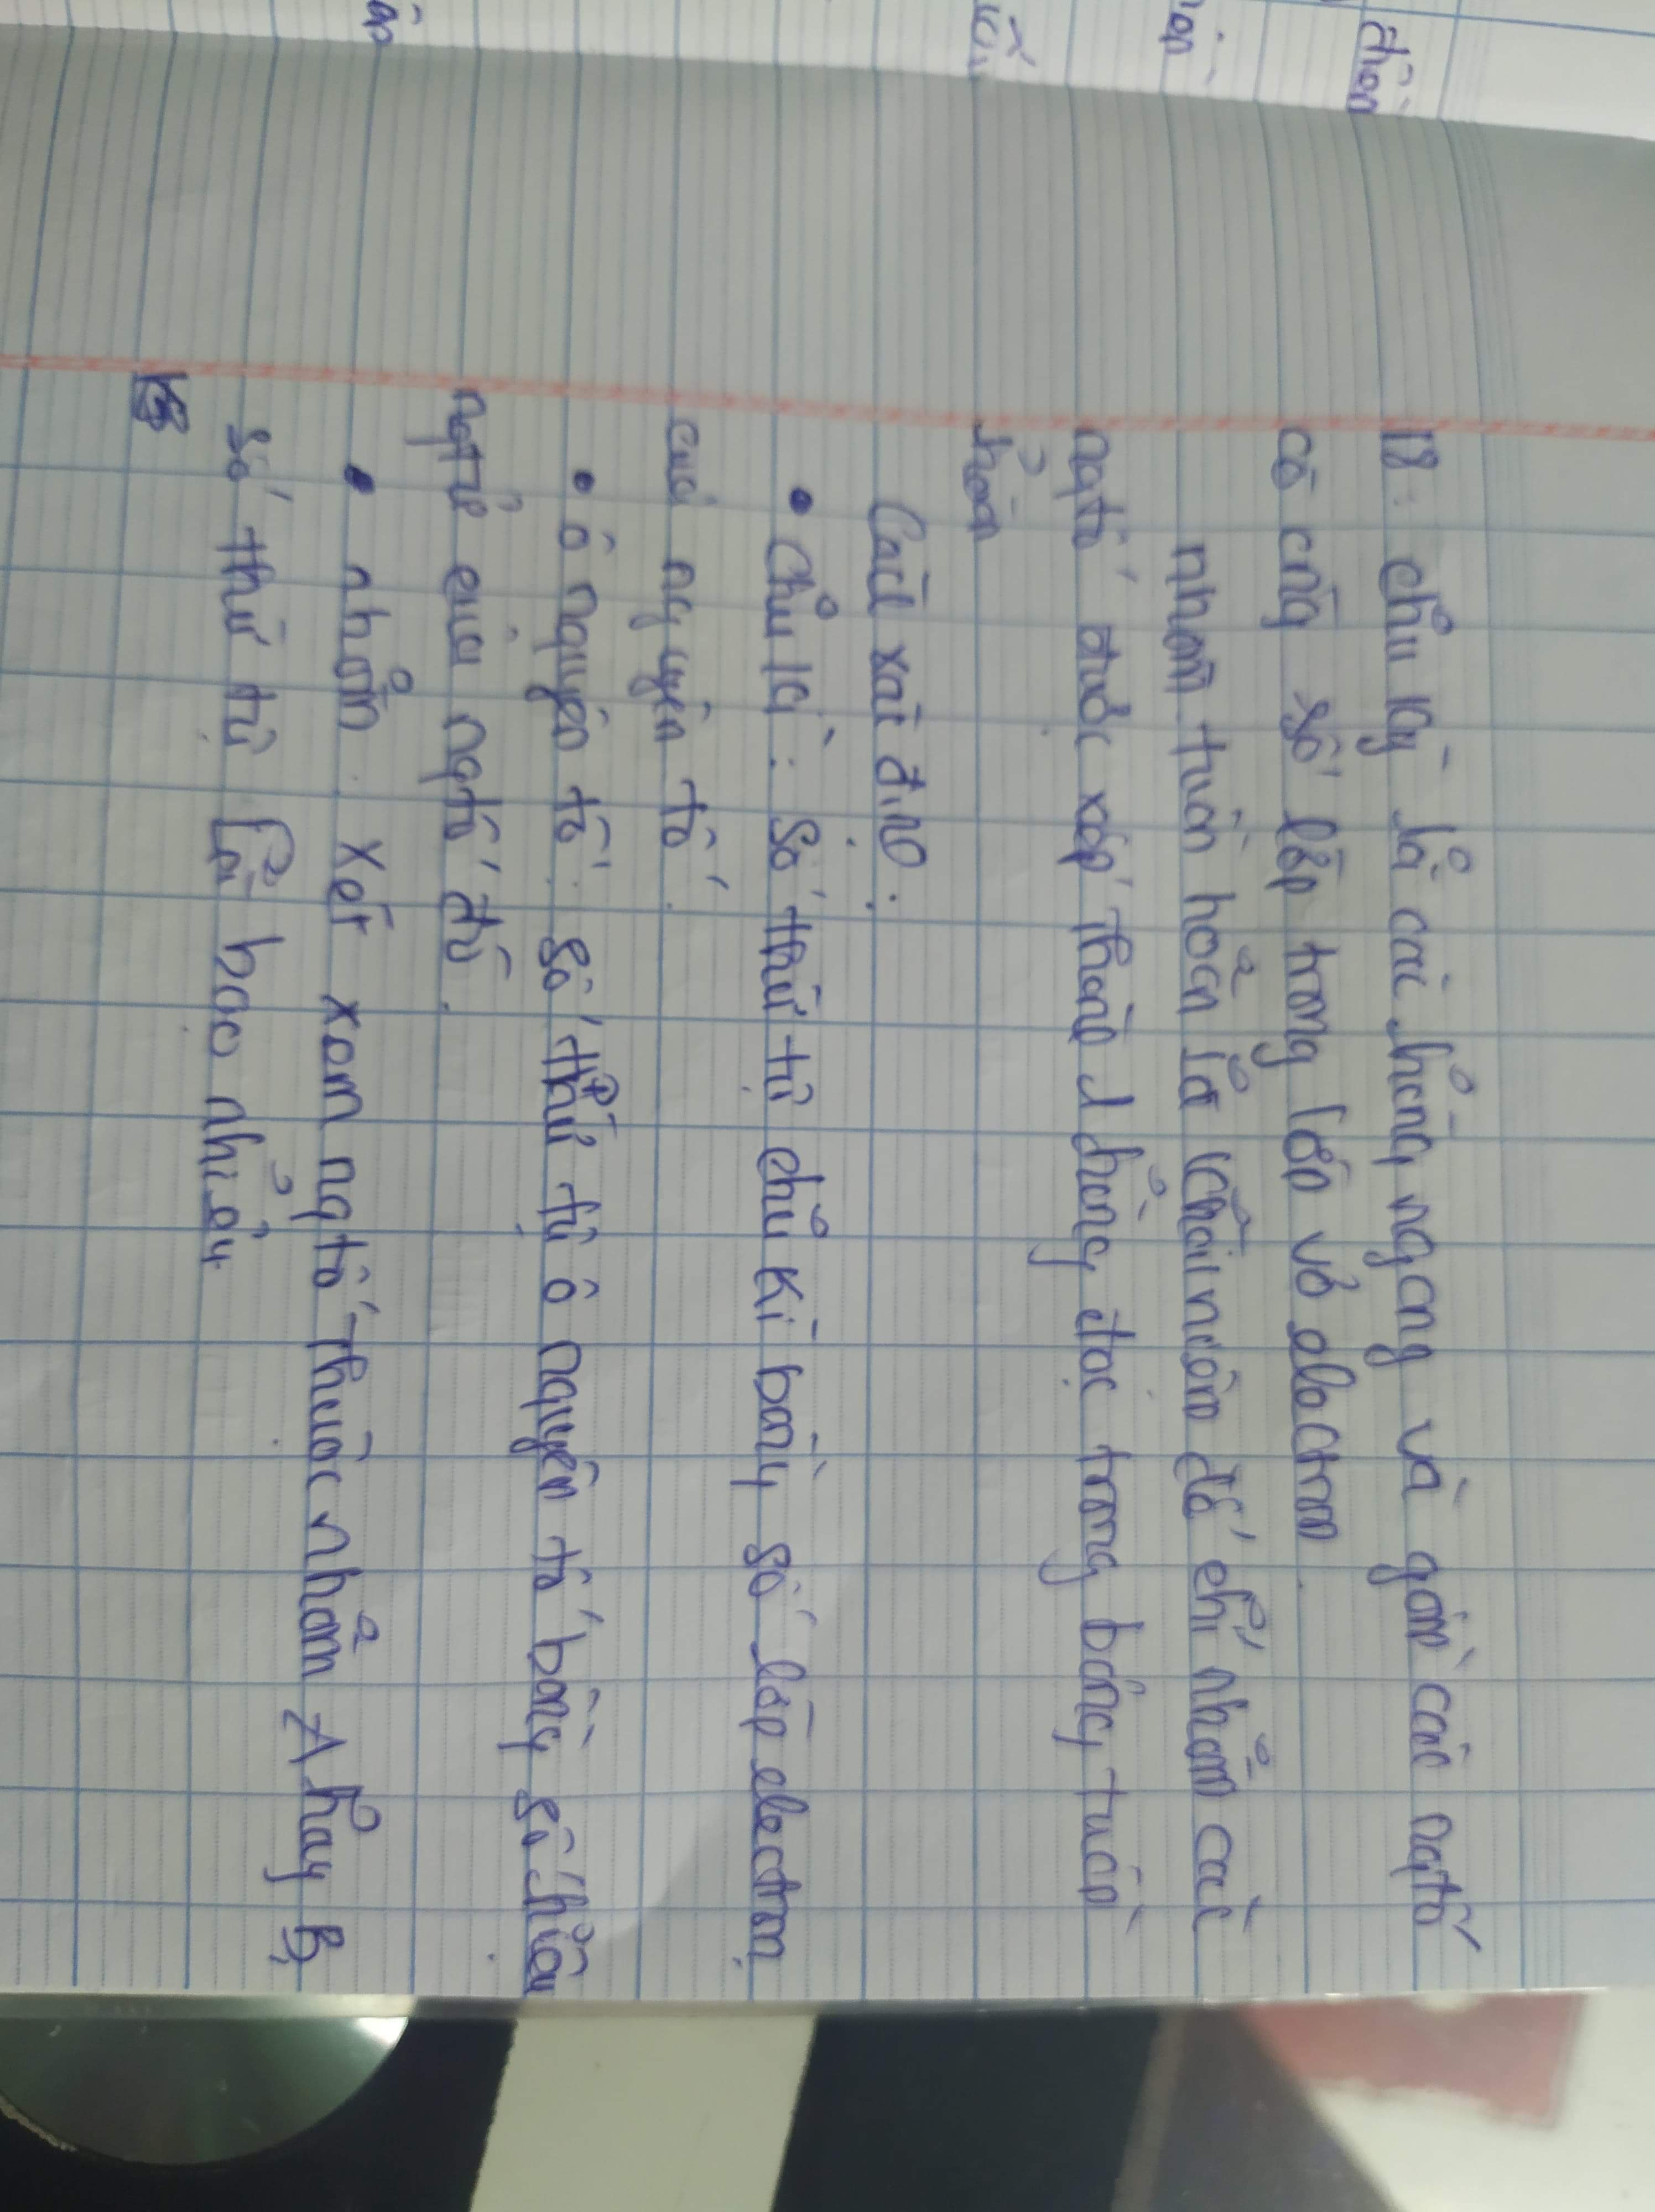 18: chu kỳ là các hàng ngang và gồm các ngtố
có cùng số lớp trong lớp vỏ electron.
nhóm tuần hoàn là khái niệm để chỉ nhóm các
ngtố được xếp thành 1 hàng dọc trong bảng tuần
hoàn
Cách xác định:
• Chu kì: Số thứ tự chu kì bằng số lớp electron
của nguyên tố.
• ô nguyên tố: số thứ tự ô nguyên tố bằng số hiệu
ngtử của ngtố đó.
• nhóm: xét xem ngtố thuộc nhóm A hay B,
số thứ tự là bao nhiêu